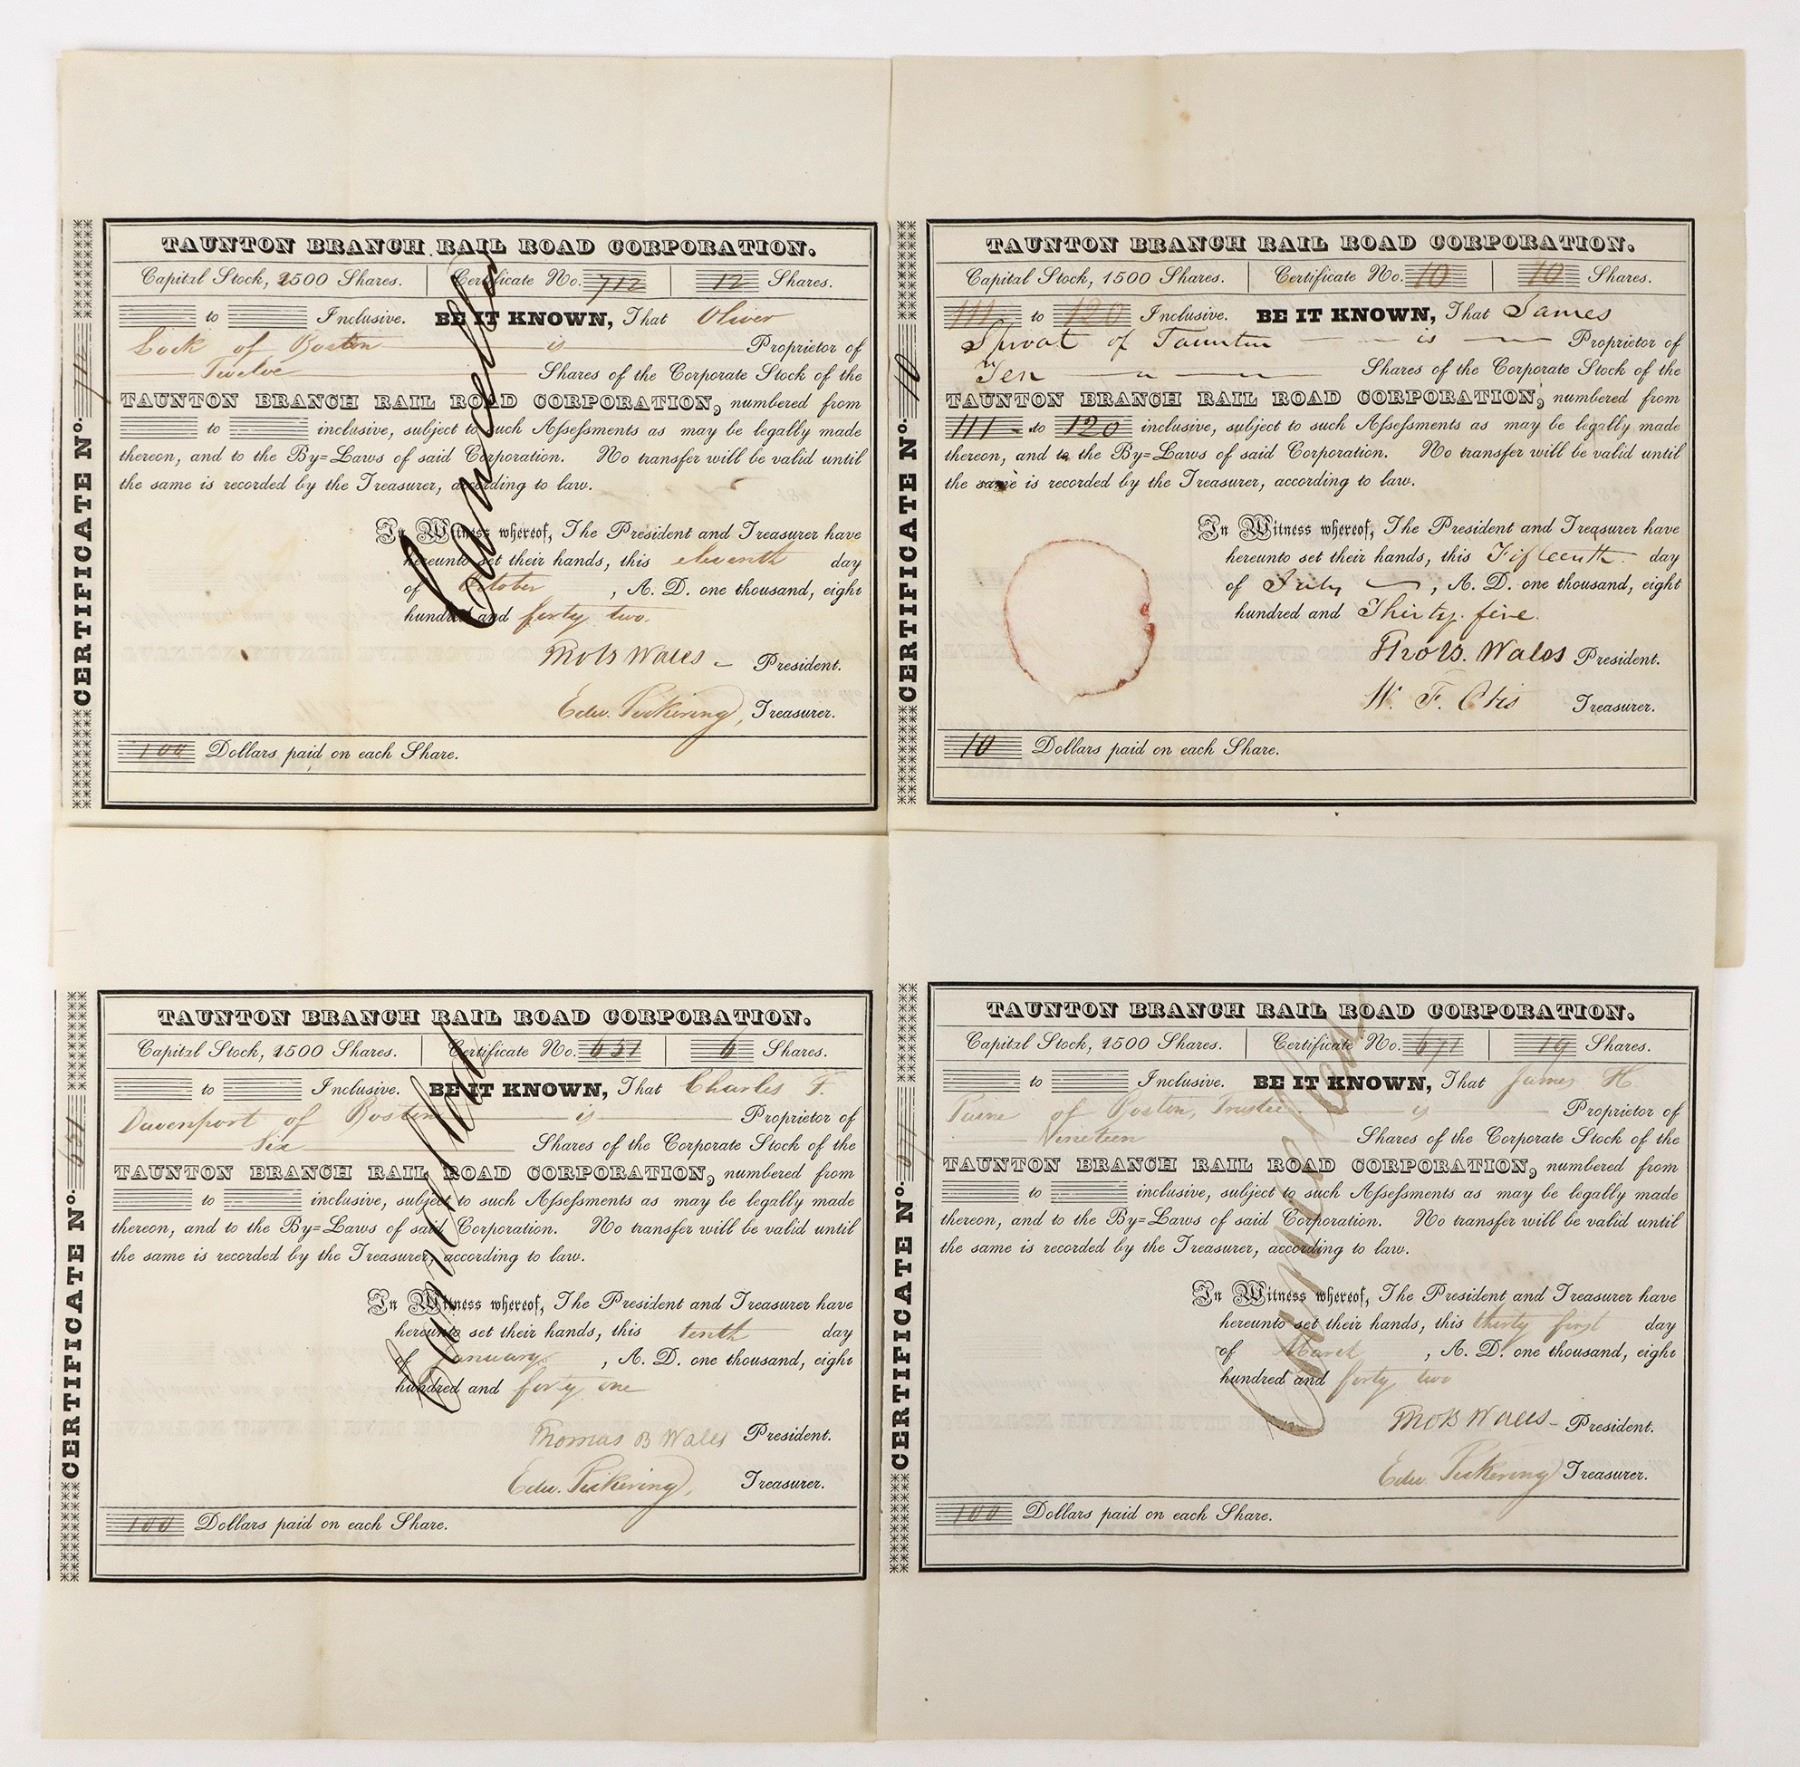 TAUNTON BRANCH RAIL ROAD CORPORATION.
Capital Stock, 2500 Shares. Certificate No. 712 12 Shares.
to Inclusive. BE IT KNOWN, That Oliver
Lock of Boston is Proprietor of
Twelve Shares of the Corporate Stock of the
TAUNTON BRANCH RAIL ROAD CORPORATION, numbered from
to inclusive, subject to such Assessments as may be legally made
thereon, and to the By=Laws of said Corporation. No transfer will be valid until
the same is recorded by the Treasurer, according to law.
In Witness whereof, The President and Treasurer have
hereunto set their hands, this eleventh day
of October, A. D. one thousand, eight
hundred and forty two.
Thos B Wales President.
Edw. Pickering, Treasurer.
100 Dollars paid on each Share.
CERTIFICATE No. 712
Cancelled
TAUNTON BRANCH RAIL ROAD CORPORATION.
Capital Stock, 1500 Shares. Certificate No. 10 10 Shares.
111 to 120 Inclusive. BE IT KNOWN, That James
Sproat of Taunton is Proprietor of
Ten Shares of the Corporate Stock of the
TAUNTON BRANCH RAIL ROAD CORPORATION, numbered from
111 to 120 inclusive, subject to such Assessments as may be legally made
thereon, and to the By=Laws of said Corporation. No transfer will be valid until
the same is recorded by the Treasurer, according to law.
In Witness whereof, The President and Treasurer have
hereunto set their hands, this Fifteenth day
of July, A. D. one thousand, eight
hundred and Thirty five.
Thos B. Wales President.
W. F. Otis Treasurer.
10 Dollars paid on each Share.
CERTIFICATE No. 10
TAUNTON BRANCH RAIL ROAD CORPORATION.
Capital Stock, 2500 Shares. Certificate No. 651 6 Shares.
to Inclusive. BE IT KNOWN, That Charles F.
Davenport of Boston is Proprietor of
Six Shares of the Corporate Stock of the
TAUNTON BRANCH RAIL ROAD CORPORATION, numbered from
to inclusive, subject to such Assessments as may be legally made
thereon, and to the By=Laws of said Corporation. No transfer will be valid until
the same is recorded by the Treasurer, according to law.
In Witness whereof, The President and Treasurer have
hereunto set their hands, this tenth day
of January, A. D. one thousand, eight
hundred and forty one
Thomas B Wales President.
Edw. Pickering, Treasurer.
100 Dollars paid on each Share.
CERTIFICATE No. 651
Cancelled
TAUNTON BRANCH RAIL ROAD CORPORATION.
Capital Stock, 2500 Shares. Certificate No. 671 19 Shares.
to Inclusive. BE IT KNOWN, That James H.
of Boston, Trustee is Proprietor of
Nineteen Shares of the Corporate Stock of the
TAUNTON BRANCH RAIL ROAD CORPORATION, numbered from
to inclusive, subject to such Assessments as may be legally made
thereon, and to the By=Laws of said Corporation. No transfer will be valid until
the same is recorded by the Treasurer, according to law.
In Witness whereof, The President and Treasurer have
hereunto set their hands, this thirty first day
of March, A. D. one thousand, eight
hundred and forty two
Thos B Wales President.
Edw. Pickering Treasurer.
100 Dollars paid on each Share.
CERTIFICATE No. 671
Cancelled